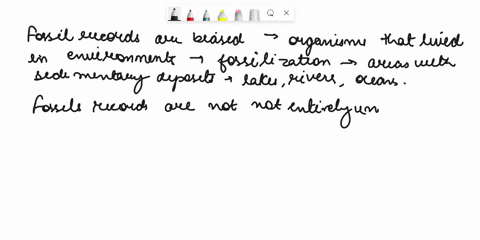 Fossil records are biased → organisms that lived
in environments → fossilization → areas with
sedimentary deposits → lakes, rivers, oceans.
Fossils records are not not entirely un